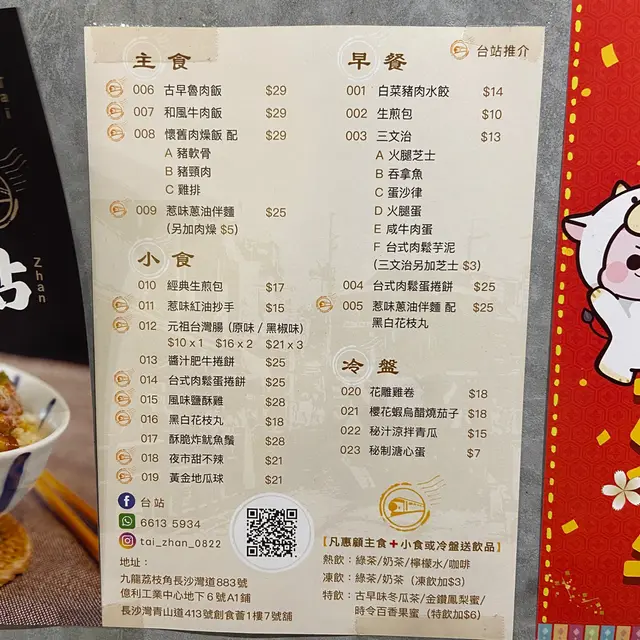 Zhan
站
台站推介
主食
006 古早魯肉飯 $29
007 和風牛肉飯 $29
008 懷舊肉燥飯 配 $29
A 豬軟骨
B 豬頸肉
C 雞排
009 惹味蔥油伴麵 $25
(另加肉燥 $5)
小食
010 經典生煎包 $17
011 惹味紅油抄手 $15
012 元祖台灣腸 (原味 / 黑椒味)
$10 x 1 $16 x 2 $21 x 3
013 醬汁肥牛捲餅 $25
014 台式肉鬆蛋捲餅 $25
015 風味鹽酥雞 $28
016 黑白花枝丸 $18
017 酥脆炸魷魚鬚 $28
018 夜市甜不辣 $21
019 黃金地瓜球 $21
早餐
001 白菜豬肉水餃 $14
002 生煎包 $10
003 三文治 $13
A 火腿芝士
B 吞拿魚
C 蛋沙律
D 火腿蛋
E 咸牛肉蛋
F 台式肉鬆芋泥
(三文治另加芝士 $3)
004 台式肉鬆蛋捲餅 $25
005 惹味蔥油伴麵 配 $25
黑白花枝丸
冷盤
020 花雕雞卷 $18
021 櫻花蝦烏醋燒茄子 $18
022 秘汁涼拌青瓜 $15
023 秘制溏心蛋 $7
台站
6613 5934
tai_zhan_0822
地址：
九龍荔枝角長沙灣道883號
億利工業中心地下6號A1鋪
長沙灣青山道413號創食薈1樓7號舖
【凡惠顧主食+小食或冷盤送飲品】
熱飲：綠茶/奶茶/檸檬水/咖啡
凍飲：綠茶/奶茶（凍飲加$3）
特飲：古早味冬瓜茶/金鑽鳳梨蜜/
時令百香果蜜（特飲加$6）